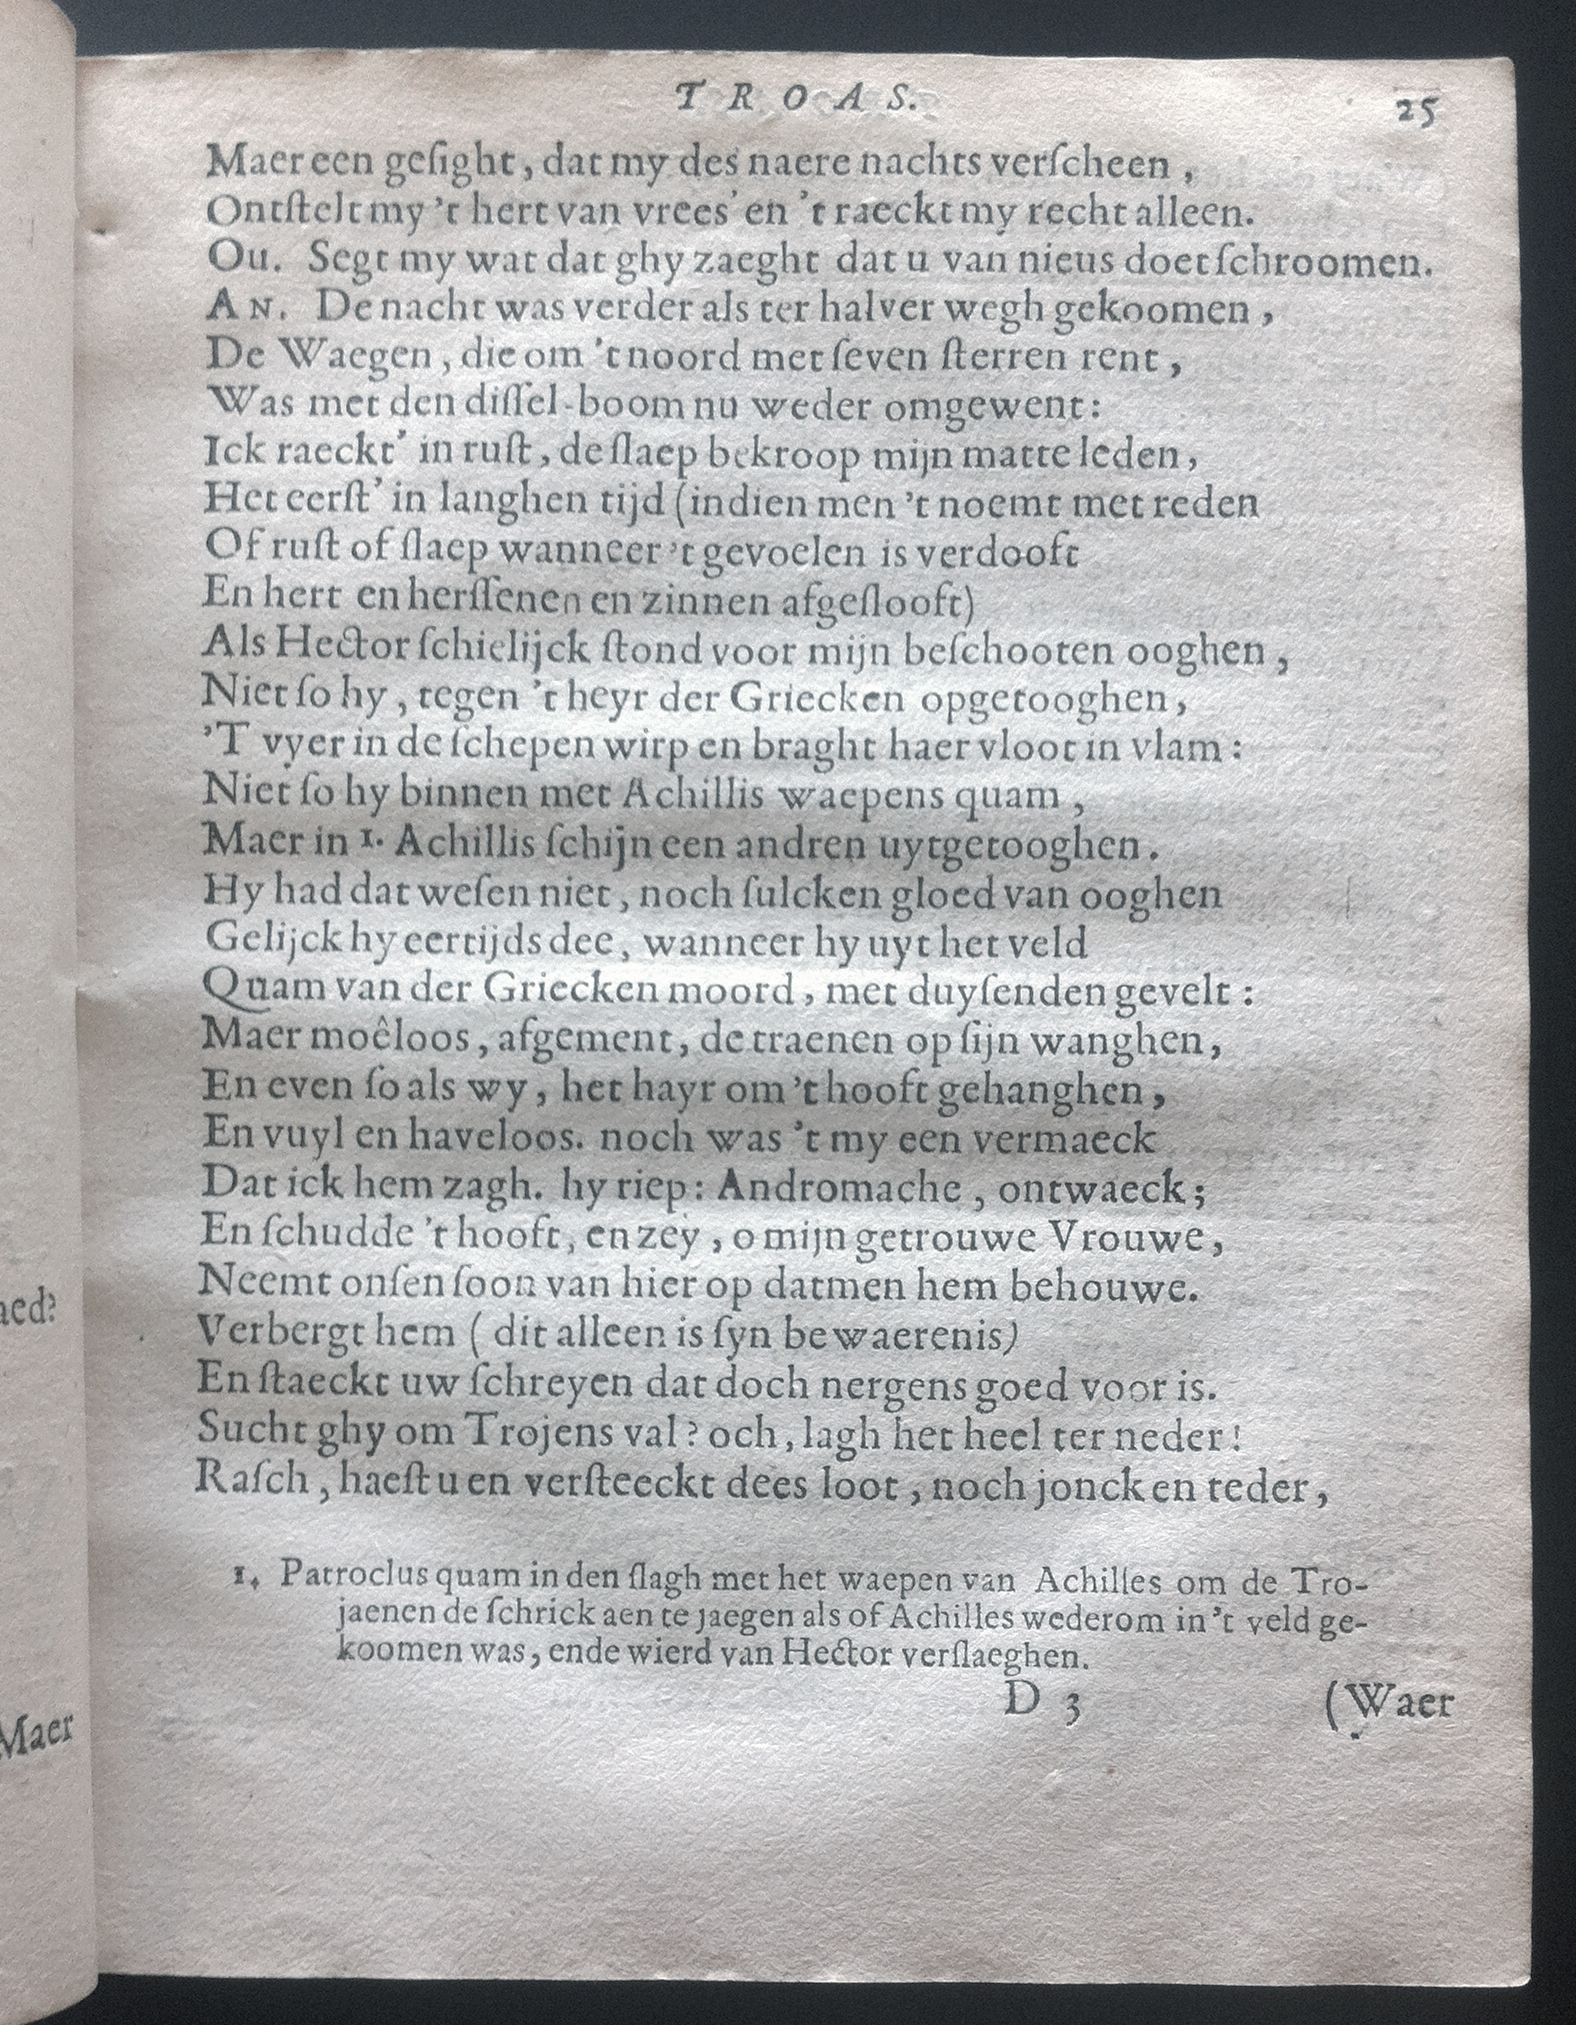 TROAS. 25
Maer een geſight, dat my des naere nachts verſcheen,
Ontſtelt my 't hert van vrees' en 't raeckt my recht alleen.
Ou. Segt my wat dat ghy zaeght dat u van nieus doet ſchroomen.
AN. De nacht was verder als ter halver wegh gekoomen,
De Waegen, die om 't noord met ſeven ſterren rent,
Was met den diſſel-boom nu weder omgewent:
Ick raeckt' in ruſt, de ſlaep bekroop mijn matte leden,
Het eerſt' in langhen tijd (indien men 't noemt met reden
Of ruſt of ſlaep wanneer 't gevoelen is verdooft
En hert en herſſenen en zinnen afgeſlooft)
Als Hector ſchielijck ſtond voor mijn beſchooten ooghen,
Niet ſo hy, tegen 't heyr der Griecken opgetooghen,
'T vyer in de ſchepen wirp en braght haer vloot in vlam:
Niet ſo hy binnen met Achillis waepens quam,
Maer in 1. Achillis ſchijn een andren uytgetooghen.
Hy had dat weſen niet, noch ſulcken gloed van ooghen
Gelijck hy eertijds dee, wanneer hy uyt het veld
Quam van der Griecken moord, met duyſenden gevelt:
Maer moêloos, afgement, de traenen op ſijn wanghen,
En even ſo als wy, het hayr om 't hooft gehanghen,
En vuyl en haveloos. noch was 't my een vermaeck
Dat ick hem zagh. hy riep: Andromache, ontwaeck;
En ſchudde 't hooft, en zey, o mijn getrouwe Vrouwe,
Neemt onſen ſoon van hier op datmen hem behouwe.
Verbergt hem (dit alleen is ſyn bewaerenis)
En ſtaeckt uw ſchreyen dat doch nergens goed voor is.
Sucht ghy om Trojens val? och, lagh het heel ter neder!
Raſch, haeſt u en verſteeckt dees loot, noch jonck en teder,
1. Patroclus quam in den ſlagh met het waepen van Achilles om de Tro-
jaenen de ſchrick aen te jaegen als of Achilles wederom in 't veld ge-
koomen was, ende wierd van Hector verſlaeghen.
D 3 (Waer
aed?
Maer